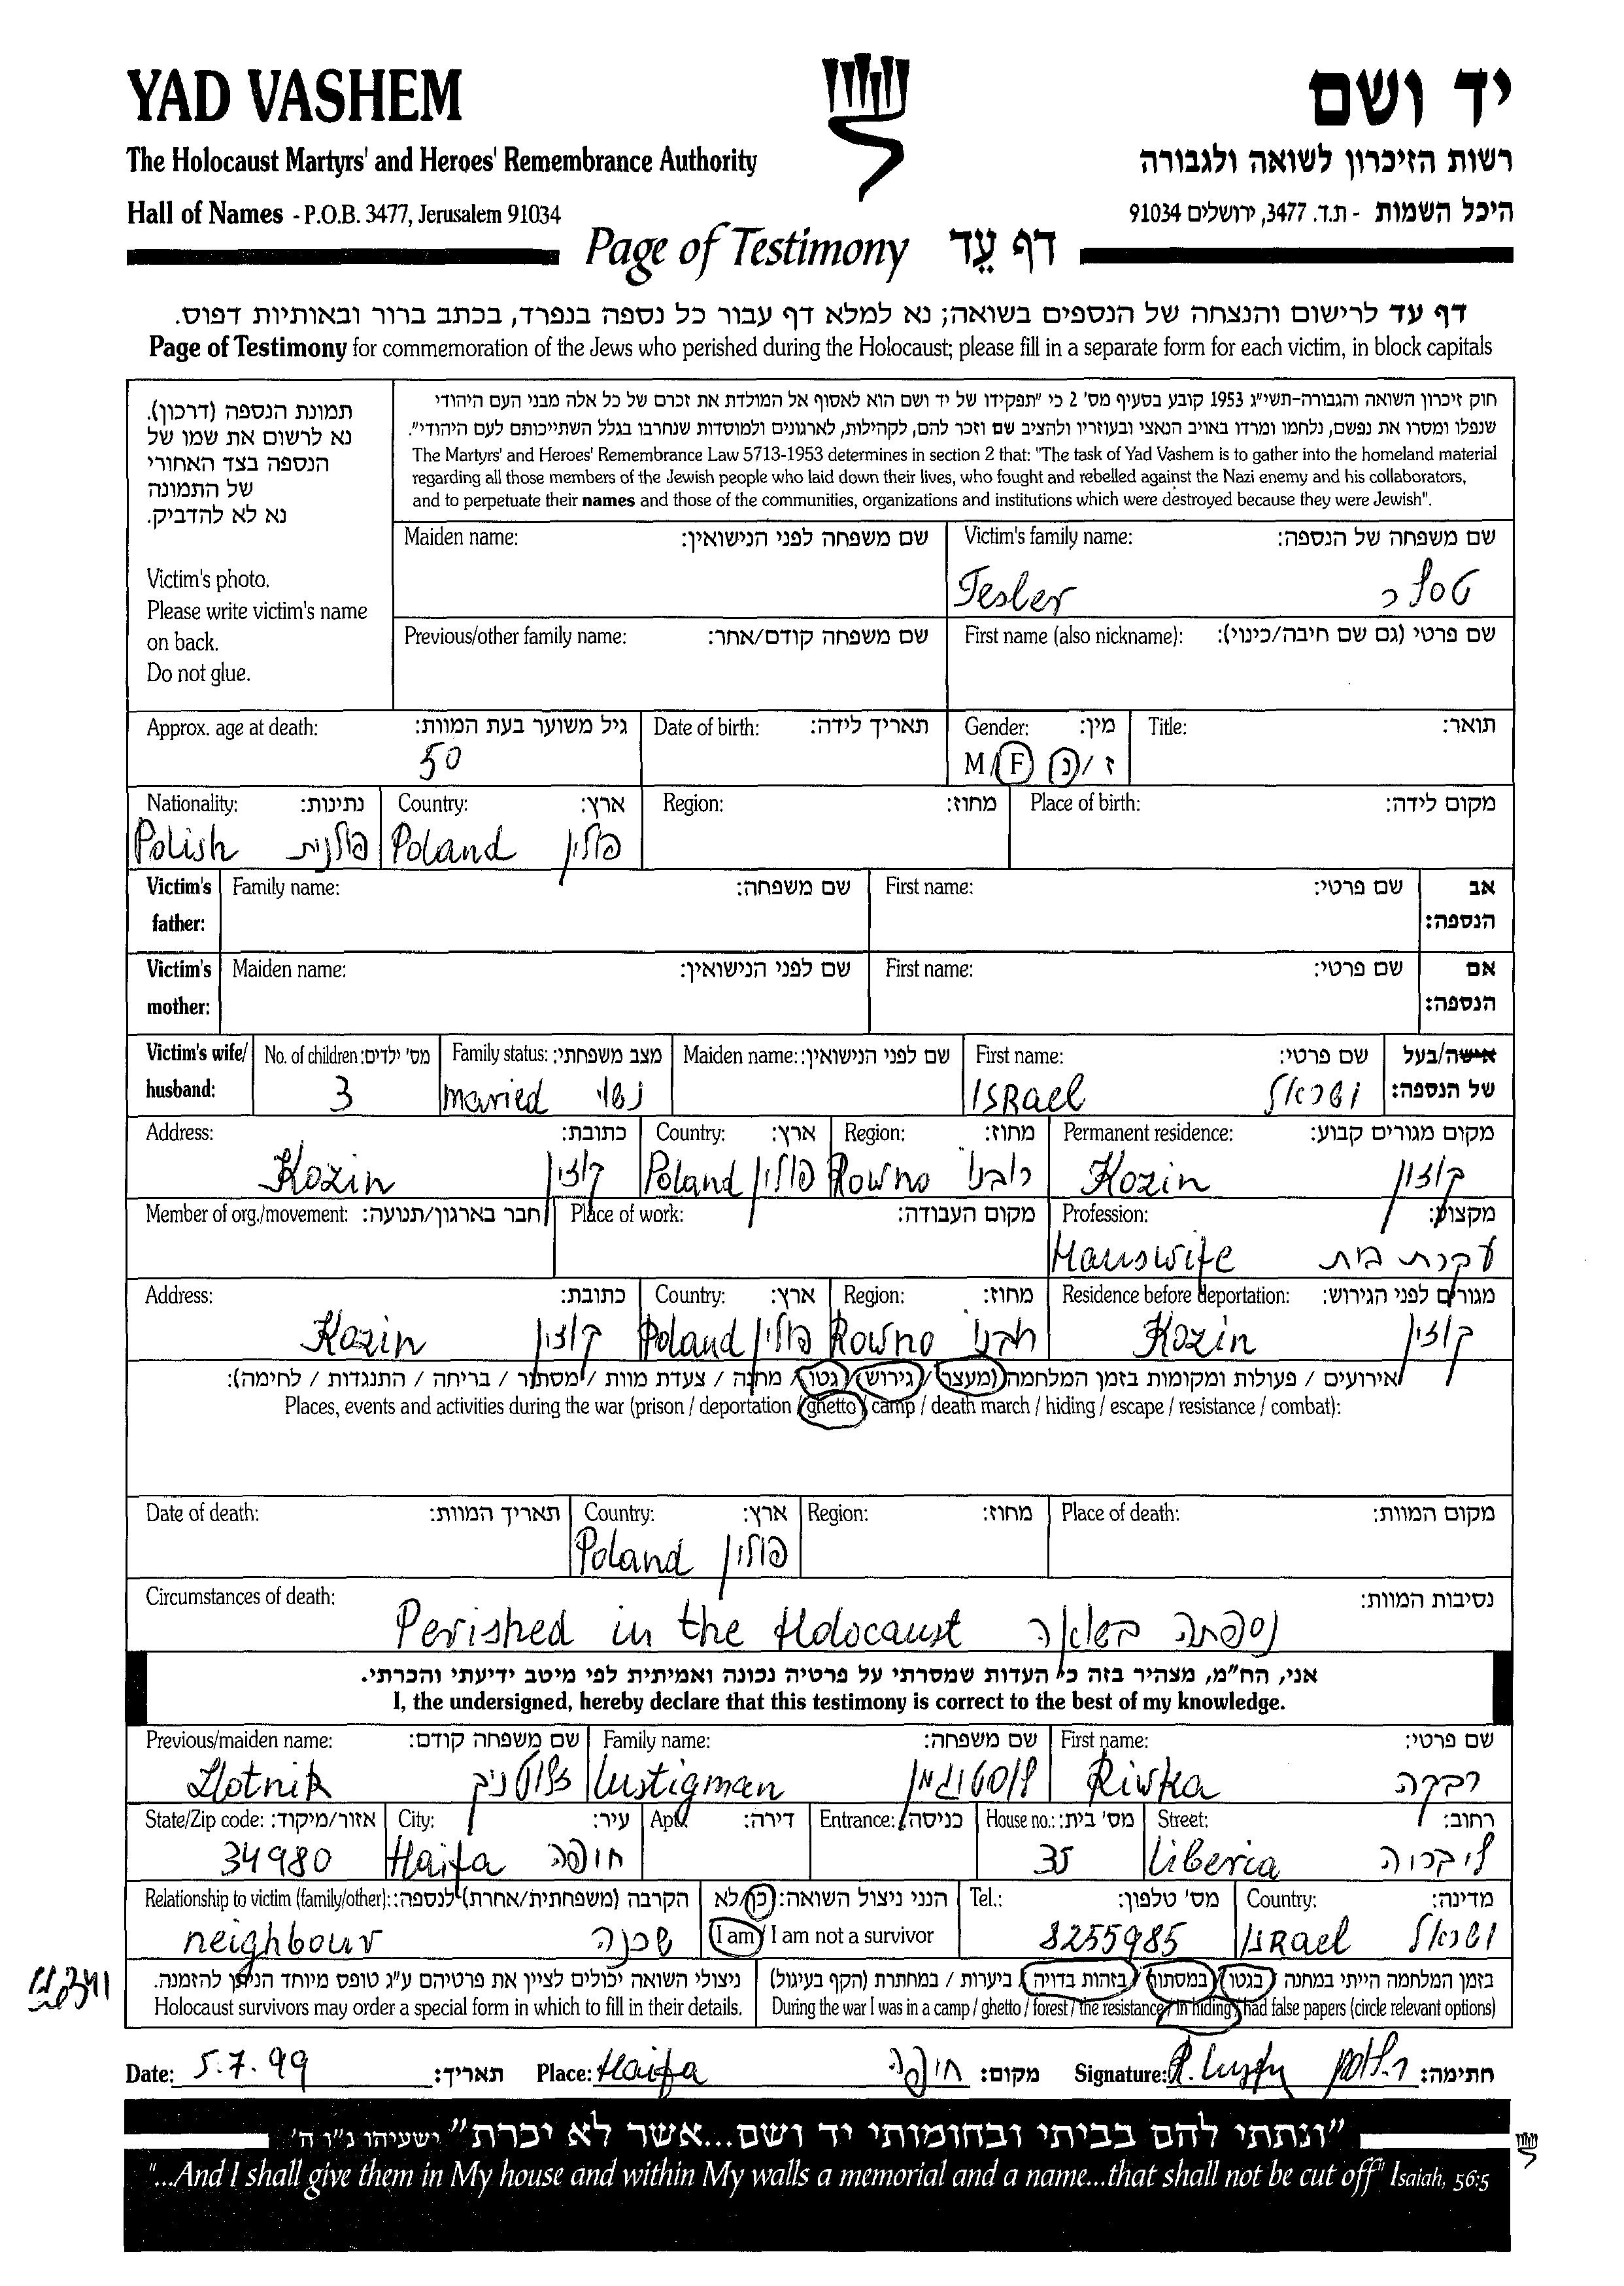 YAD VASHEM
יד ושם
The Holocaust Martyrs' and Heroes' Remembrance Authority
רשות הזיכרון לשואה ולגבורה
Hall of Names - P.O.B. 3477, Jerusalem 91034
היכל השמות - ת.ד. 3477, ירושלים 91034
Page of Testimony דף עֵד
דף עד לרישום והנצחה של הנספים בשואה; נא למלא דף עבור כל נספה בנפרד, בכתב ברור ובאותיות דפוס.
Page of Testimony for commemoration of the Jews who perished during the Holocaust; please fill in a separate form for each victim, in block capitals
תמונת הנספה (דרכון).
נא לרשום את שמו של
הנספה בצד האחורי
של התמונה
נא לא להדביק.
Victim's photo.
Please write victim's name
on back.
Do not glue.
חוק זיכרון השואה והגבורה-תשי"ג 1953 קובע בסעיף מס' 2 כי "תפקידו של יד ושם הוא לאסוף אל המולדת את זכרם של כל אלה מבני העם היהודי
שנפלו ומסרו את נפשם, נלחמו ומרדו באויב הנאצי ובעוזריו ולהציב שם וזכר להם, לקהילות, לארגונים ולמוסדות שנחרבו בגלל השתייכותם לעם היהודי".
The Martyrs' and Heroes' Remembrance Law 5713-1953 determines in section 2 that: "The task of Yad Vashem is to gather into the homeland material
regarding all those members of the Jewish people who laid down their lives, who fought and rebelled against the Nazi enemy and his collaborators,
and to perpetuate their names and those of the communities, organizations and institutions which were destroyed because they were Jewish".
Maiden name: שם משפחה לפני הנישואין:
Victim's family name: שם משפחה של הנספה:
Tesler טסלר
Previous/other family name: שם משפחה קודם/אחר:
First name (also nickname): שם פרטי (גם שם חיבה/כינוי):
Approx. age at death: גיל משוער בעת המוות:
50
Date of birth: תאריך לידה:
Gender: מין:
M/F ז/נ
Title: תואר:
Nationality: נתינות:
Polish פולנית
Country: ארץ:
Poland פולין
Region: מחוז:
Place of birth: מקום לידה:
Victim's father:
Family name: שם משפחה:
First name: שם פרטי:
אב הנספה:
Victim's mother:
Maiden name: שם לפני הנישואין:
First name: שם פרטי:
אם הנספה:
Victim's wife/husband:
No. of children: מס' ילדים:
3
Family status: מצב משפחתי:
maried נשוי
Maiden name: שם לפני הנישואין:
First name: שם פרטי:
ISRael ישראל
אישה/בעל של הנספה:
Address: כתובת:
Kozin קוזין
Country: ארץ:
Poland פולין
Region: מחוז:
Rowno רובנו
Permanent residence: מקום מגורים קבוע:
Kozin קוזין
Member of org./movement: חבר בארגון/תנועה:
Place of work: מקום העבודה:
Profession: מקצוע:
Hauswife עקרת בית
Address: כתובת:
Kozin קוזין
Country: ארץ:
Poland פולין
Region: מחוז:
Rowno רובנו
Residence before deportation: מגורים לפני הגירוש:
Kozin קוזין
אירועים / פעולות ומקומות בזמן המלחמה (מעצר / גירוש / גטו / מחנה / צעדת מוות / מסתור / בריחה / התנגדות / לחימה):
Places, events and activities during the war (prison / deportation / ghetto / camp / death march / hiding / escape / resistance / combat):
Date of death: תאריך המוות:
Country: ארץ:
Poland פולין
Region: מחוז:
Place of death: מקום המוות:
Circumstances of death: נסיבות המוות:
Perished in the Holocaust נספתה בשואה
אני, הח"מ, מצהיר בזה כי העדות שמסרתי על פרטיה נכונה ואמיתית לפי מיטב ידיעתי והכרתי.
I, the undersigned, hereby declare that this testimony is correct to the best of my knowledge.
Previous/maiden name: שם משפחה קודם:
Zlotnik זלוטניק
Family name: שם משפחה:
Lustigman לוסטיגמן
First name: שם פרטי:
Riwka רבקה
State/Zip code: אזור/מיקוד:
34980
City: עיר:
Haifa חיפה
Apt.: דירה:
Entrance: כניסה:
House no.: מס' בית:
35
Street: רחוב:
Liberia ליבריה
Relationship to victim (family/other): הקרבה (משפחתית/אחרת) לנספה:
neighbour שכנה
הנני ניצול השואה: כן/לא
I am / I am not a survivor
Tel.: מס' טלפון:
8255985
Country: מדינה:
ISRael ישראל
ניצולי השואה יכולים לציין את פרטיהם ע"ג טופס מיוחד הניתן להזמנה.
Holocaust survivors may order a special form in which to fill in their details.
בזמן המלחמה הייתי במחנה / בגטו / במסתור / בזהות בדויה / ביערות / במחתרת (הקף בעיגול)
During the war I was in a camp / ghetto / forest / the resistance / in hiding / had false papers (circle relevant options)
Date: 5.7.99 תאריך:
Place: Haifa חיפה מקום:
Signature: חתימה:
"ונתתי להם בביתי ובחומותי יד ושם...אשר לא יכרת" ישעיהו נ"ו ה'
"...And I shall give them in My house and within My walls a memorial and a name...that shall not be cut off" Isaiah, 56:5